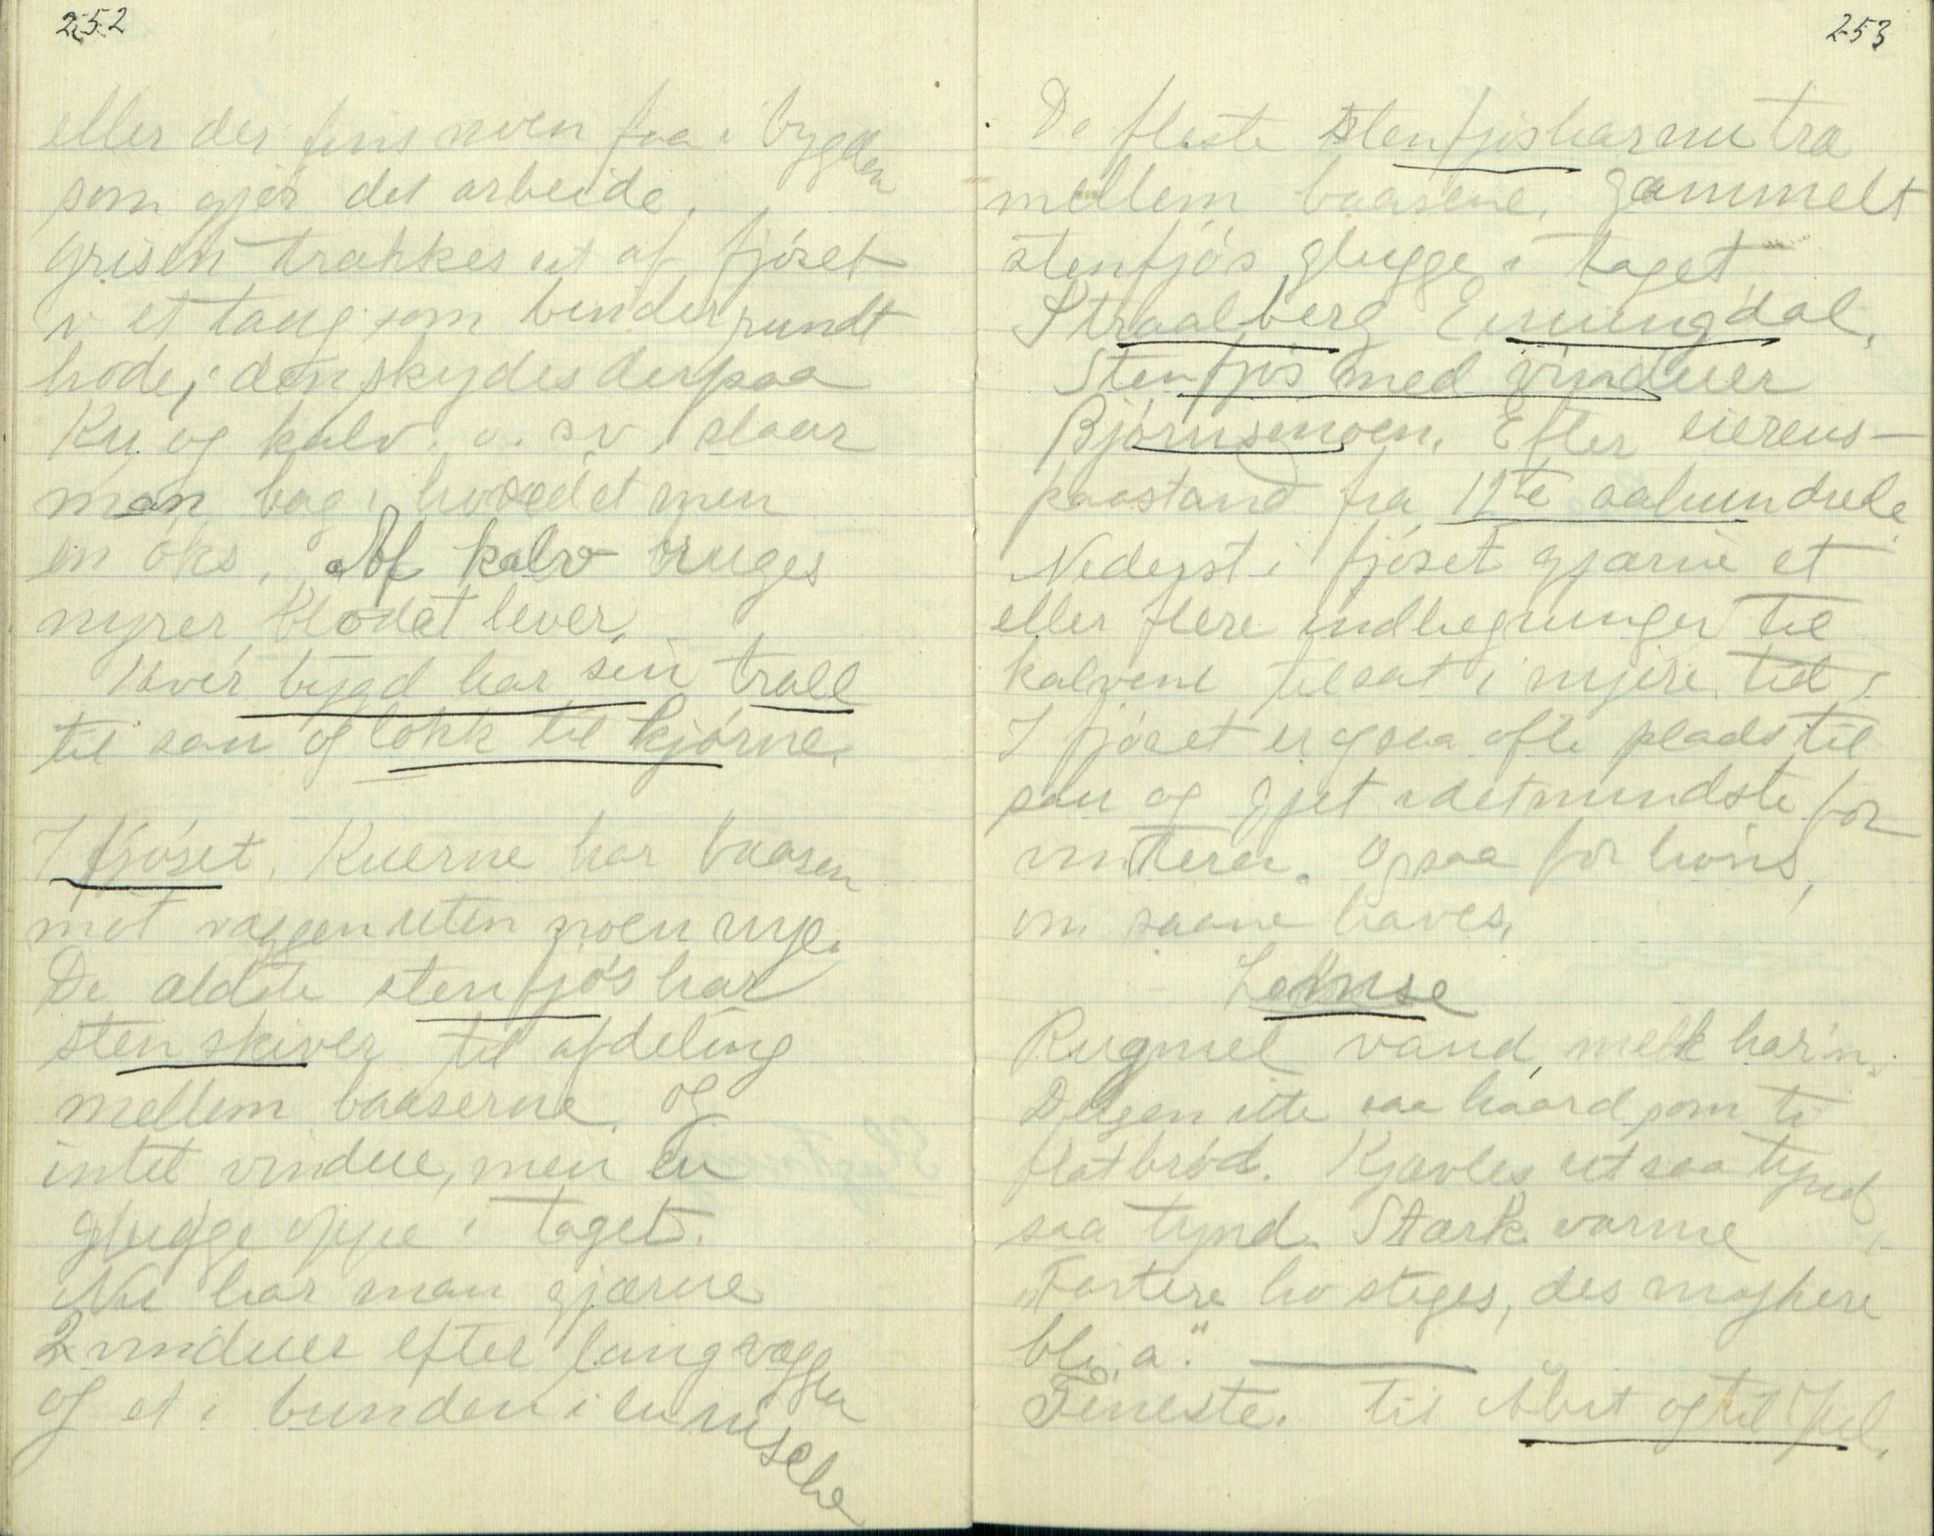 252
eller der fins noen faa i bygden
som gjør det arbeide.
Grisen trækkes ut af fjøset
v et taug som binder rundt
hode, den skydes derpaa
Ku og kalv o. s v, slaar
man bag i hovedet men
en øks. Af kalv bruges
nyrer, blodet lever.
Hver bygd har sin trall
til sau og lokk til kjørne.
I fjøset. Kuerne har baasen
mot væggen uten noen
De ældste stenfjøs har
stenskiver til afdeling
mellem baaserne og
intet vindue, men en
glugge oppe i taget.
Nu har man gjærne
2 vinduer efter langvæggen
og et i bunden i en nische
253
De fleste stenfjøs har nu træ
mellem baasene. Gammelt
stenfjøs glugge i taget
Straalberg Einungdal,
Stenfjøs med vinduer
Bjørnsmoen. Efter eierens
paastand fra 12te aahundrede
Nederst i fjøset gjærne et
eller flere indhegninger til
kalvene tilsat i nyere tid
I fjøset er ogsaa ofte plads til
sau og gjet idetmindste for
vinteren. Ogsaa for høns,
om saane haves.
Lemse
Rugmel vand, melk har'n.
Deigen itte saa haard som te
flatbrød. Kjævles ut saa tynd
saa tynd. Stærk varme
"Fortere ho steges, des mojkere
bli a."
Teneste. til Abit og til Jul.